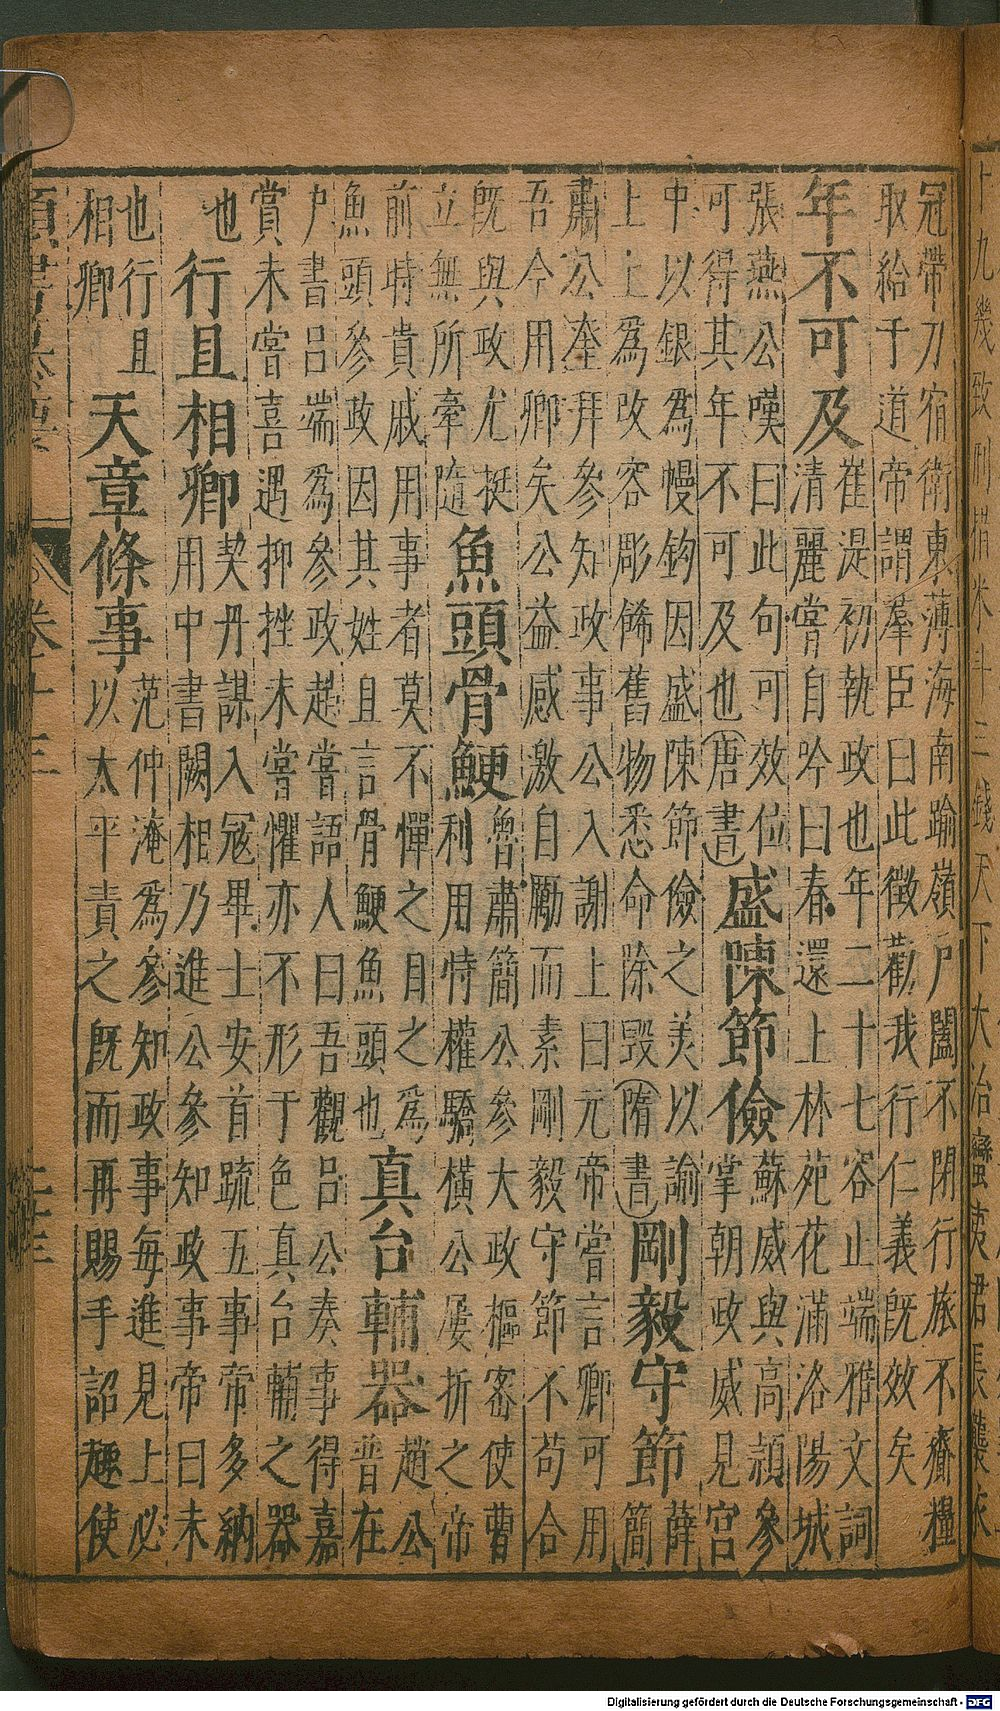 十九幾致刑措米斗三錢天下大治蠻夷君長襲衣
冠帶刀宿衛東薄海南踰嶺戶闔不閉行旅不齎糧
取給于道帝謂羣臣曰此徵勸我行仁義既效矣
年不可及
崔湜初執政也年二十七容止端雅文詞
清麗嘗自吟曰春還上林苑花滿洛陽城
張燕公嘆曰此句可效位
可得其年不可及也(唐書)
盛陳節儉
蘇威與高熲參
掌朝政威見宮
中以銀為幔鈎因盛陳節儉之美以諭
上上為改容彫餙舊物悉命除毀(隋書)
剛毅守節
薛
簡
肅公奎拜參知政事公入謝上曰元帝嘗言卿可用
吾今用卿矣公益感激自勵而素剛毅守節不苟合
既與政尤挺
立無所牽隨
魚頭骨鯁
魯肅簡公參大政樞密使曹
利用恃權驕橫公屢折之帝
前時貴戚用事者莫不憚之目之為
魚頭參政因其姓且言骨鯁魚頭也
真台輔器
趙公
普在
戶書呂端為參政趙嘗語人曰吾觀呂公奏事得嘉
賞未嘗喜遇抑挫未嘗懼亦不形于色真台輔之器
也
行且相卿
契丹謀入冦畢士安首疏五事帝多納
用中書闕相乃進公參知政事帝曰未
也行且
相卿
天章條事
范仲淹為參知政事每進見上必
以太平責之既而再賜手詔趣使
卷十三
Digitalisierung gefördert durch die Deutsche Forschungsgemeinschaft - DFG